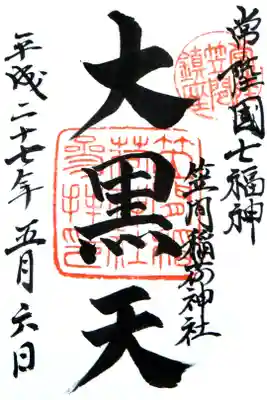 常陸国七福神
笠間稲荷神社
大黒天
平成二十七年五月六日